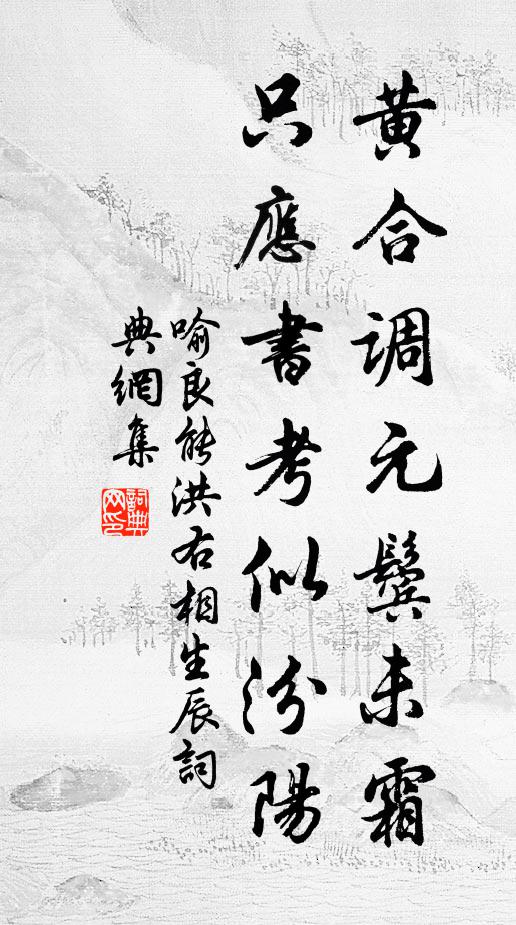 黄合调元鬓未霜
只應書考似汾陽
喻良能洪右相生辰詞
典網集
詞典網印